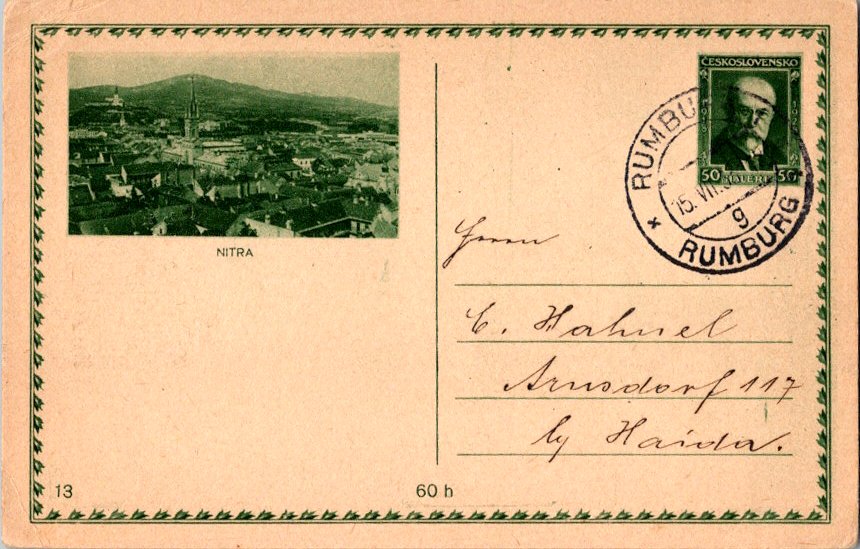 NITRA
ČESKOSLOVENSKO
50 HALÉŘŮ 50
RUMBU
15. VII.
g
* RUMBURG
Herrn
C. Hahnel
Arnsdorf 117
by Haida.
13
60 h